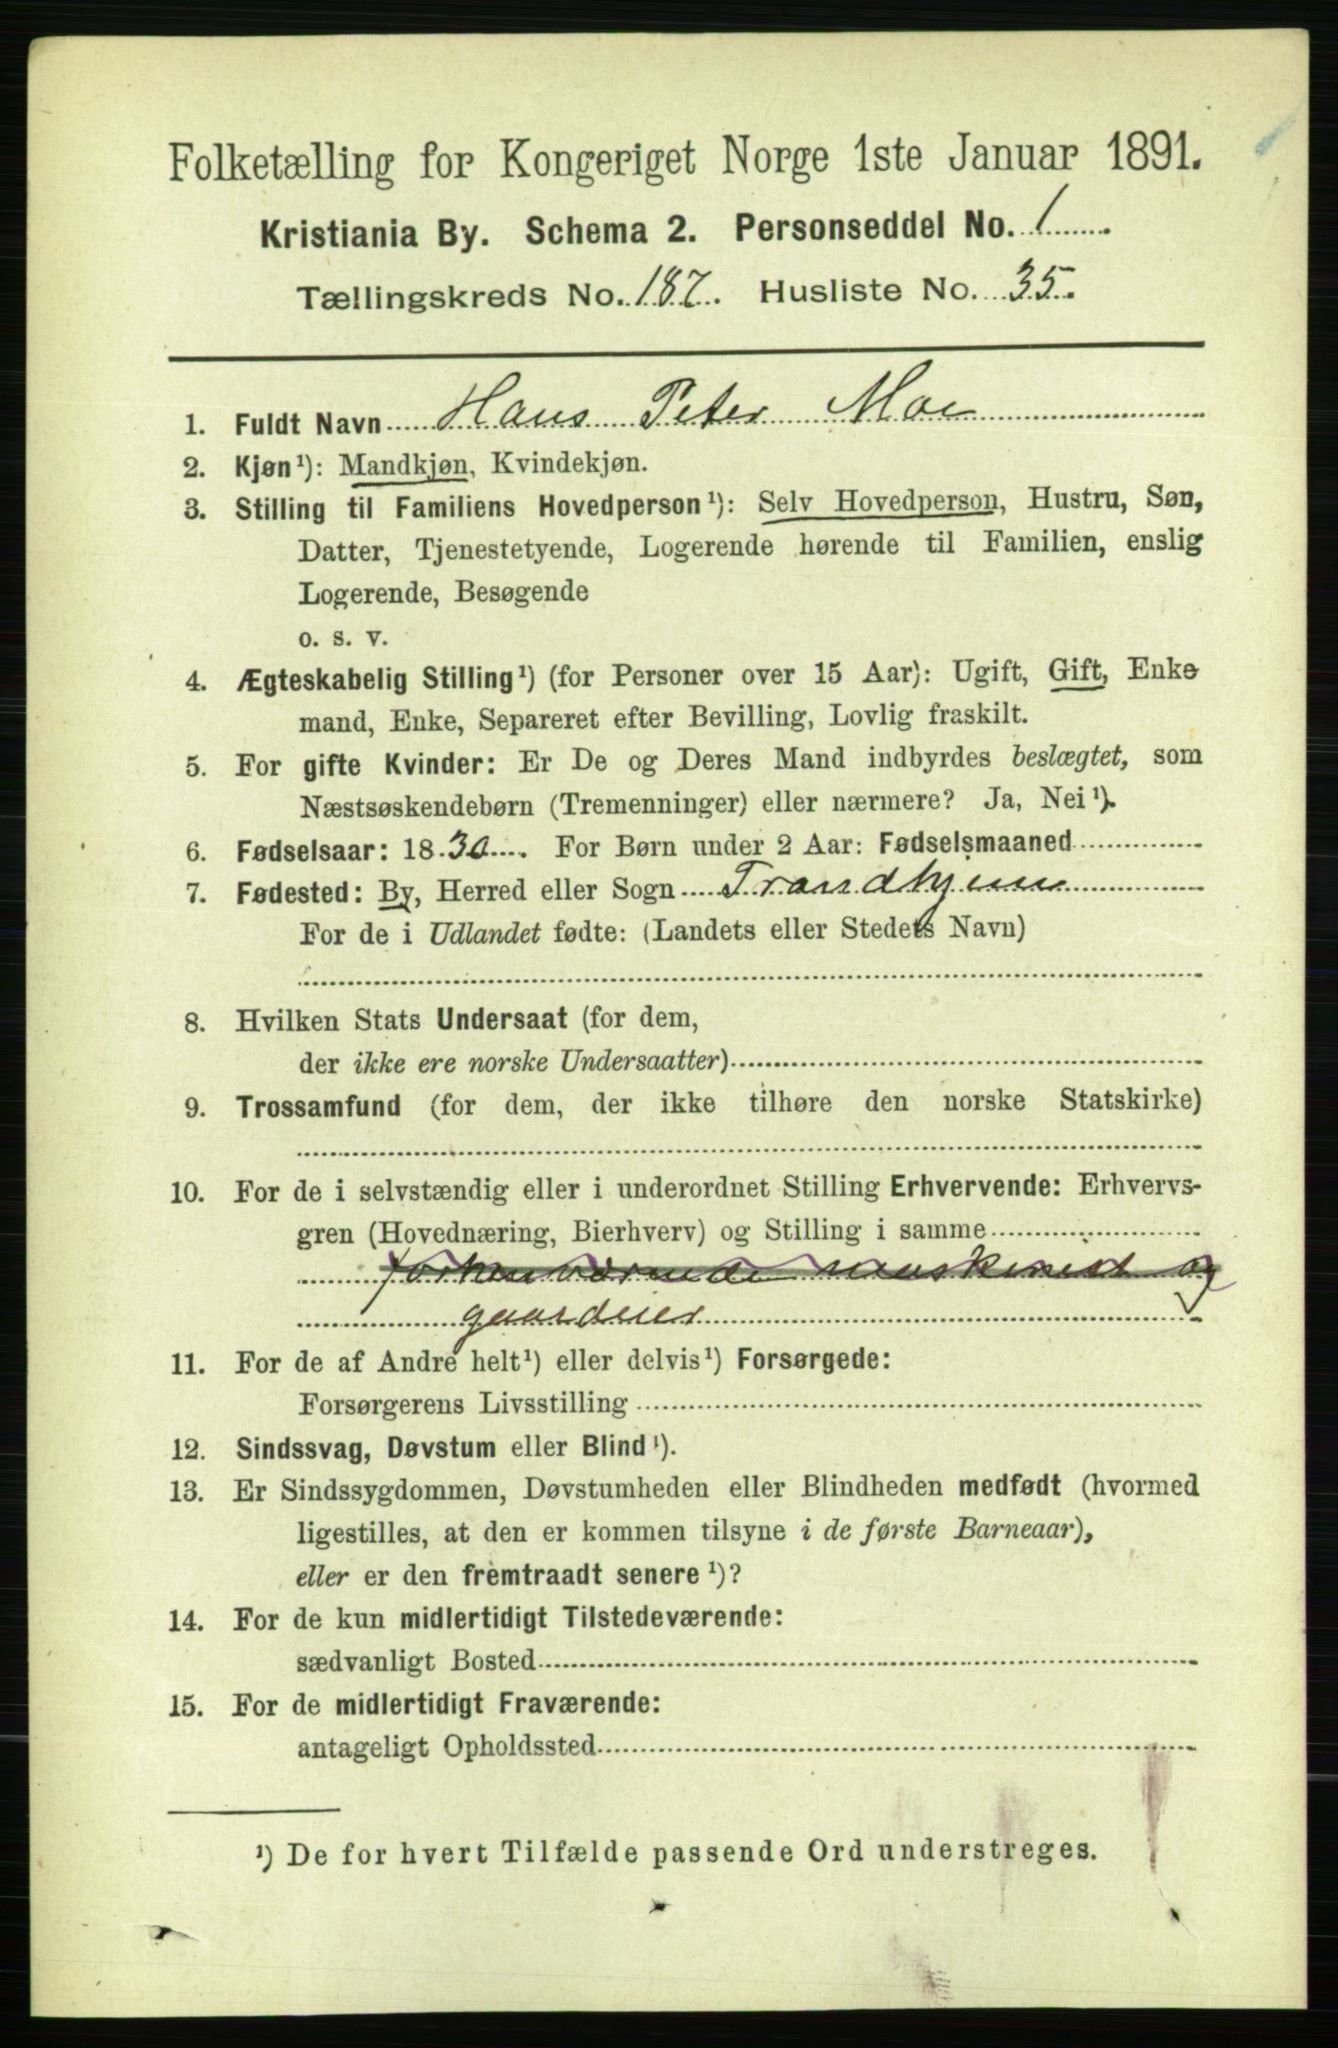 Folketælling for Kongeriget Norge 1ste Januar 1891.
Kristiania By. Schema 2. Personseddel No. 1
Tællingskreds No. 187. Husliste No. 35.
1. Fuldt Navn Hans Peter Moe
2. Kjøn¹): Mandkjøn, Kvindekjøn.
3. Stilling til Familiens Hovedperson¹): Selv Hovedperson, Hustru, Søn,
Datter, Tjenestetyende, Logerende hørende til Familien, enslig
Logerende, Besøgende
o. s. v.
4. Ægteskabelig Stilling¹) (for Personer over 15 Aar): Ugift, Gift, Enke
mand, Enke, Separeret efter Bevilling, Lovlig fraskilt.
5. For gifte Kvinder: Er De og Deres Mand indbyrdes beslægtet, som
Næstsøskendebørn (Tremenninger) eller nærmere? Ja, Nei¹).
6. Fødselsaar: 1830. For Børn under 2 Aar: Fødselsmaaned
7. Fødested: By, Herred eller Sogn Trondhjem
For de i Udlandet fødte: (Landets eller Stedets Navn)
8. Hvilken Stats Undersaat (for dem,
der ikke ere norske Undersaatter)
9. Trossamfund (for dem, der ikke tilhøre den norske Statskirke)
10. For de i selvstændig eller i underordnet Stilling Erhvervende: Erhvervs-
gren (Hovednæring, Bierhverv) og Stilling i samme
forhenværende maskinist og
gaardeier
11. For de af Andre helt¹) eller delvis¹) Forsørgede:
Forsørgerens Livsstilling
12. Sindssvag, Døvstum eller Blind¹).
13. Er Sindssygdommen, Døvstumheden eller Blindheden medfødt (hvormed
ligestilles, at den er kommen tilsyne i de første Barneaar),
eller er den fremtraadt senere¹)?
14. For de kun midlertidigt Tilstedeværende:
sædvanligt Bosted
15. For de midlertidigt Fraværende:
antageligt Opholdssted
¹) De for hvert Tilfælde passende Ord understreges.